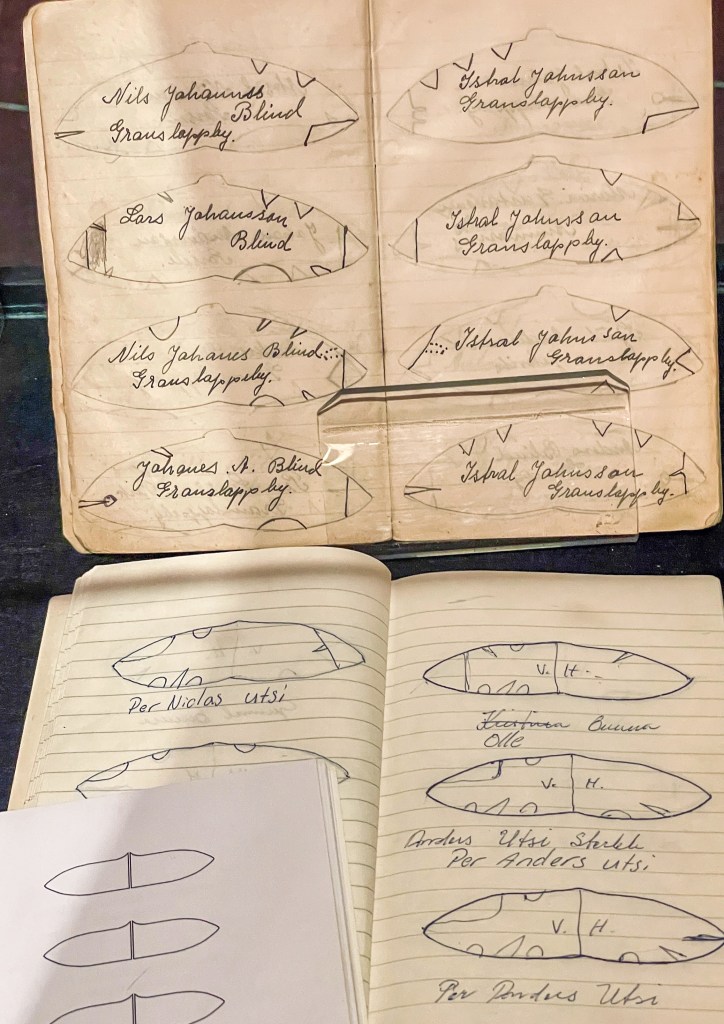 Nils Johannss
Blind
Granslappby.
Lars Johansson
Blind
Nils Johanes Blind
Granslappby.
Johanes A. Blind
Granslappby.
Istral Johnssan
Granslappby.
Istral Johnssan
Granslappby.
Istral Johnssan
Granslappby.
Istral Johnsson
Granslappby.
Per Niclas Utsi
V. H.
Olle
V. H.
Anders Utsi
Per Anders Utsi
V. H.
Per Anders Utsi